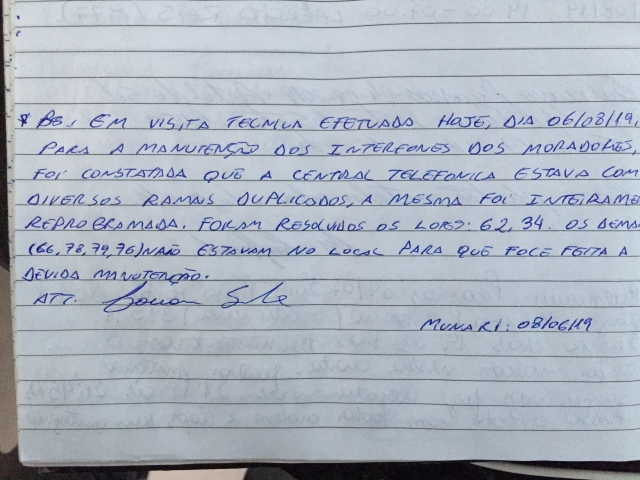 * OBS: EM VISITA TECNICA EFETUADA HOJE, DIA 06/08/19,
PARA A MANUTENÇÃO DOS INTERFONES DOS MORADORES,
FOI CONSTATADA QUE A CENTRAL TELEFONICA ESTAVA COM
DIVERSOS RAMAIS DUPLICADOS, A MESMA FOI INTEIRAME
REPROGRAMADA. FORAM RESOLVIDOS OS LOTES: 62, 34. OS DEMA
(66, 78, 79, 76) NÃO ESTAVAM NO LOCAL PARA QUE FOCE FEITA A
DEVIDA MANUTENÇÃO.
ATT.
MUNARI: 08/06/19